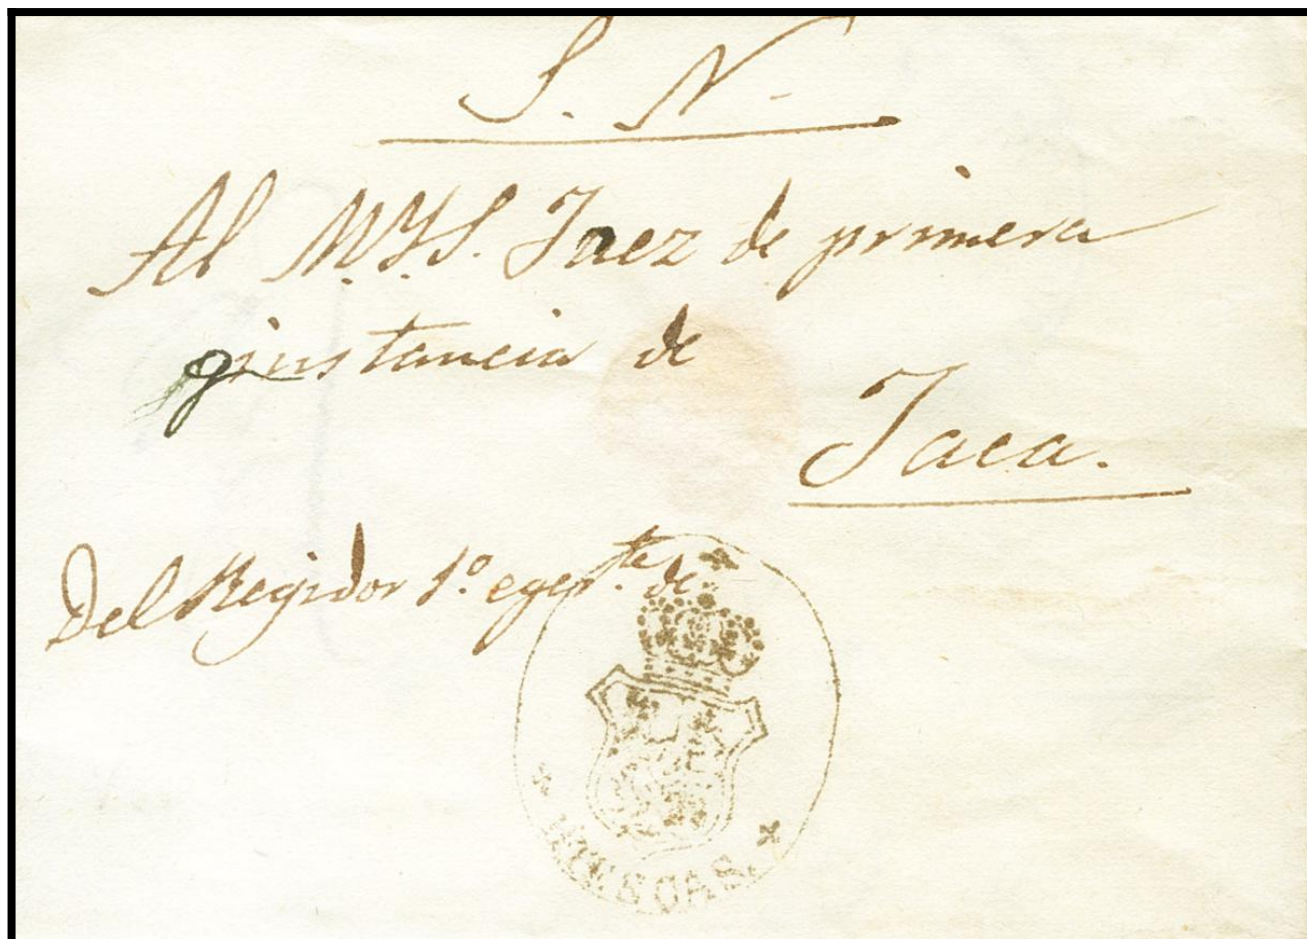 S. N.
Al M.Y.S. Juez de primera
ynstancia de
Jaca.
Del Regidor 1º egerte. de
BIESCAS.